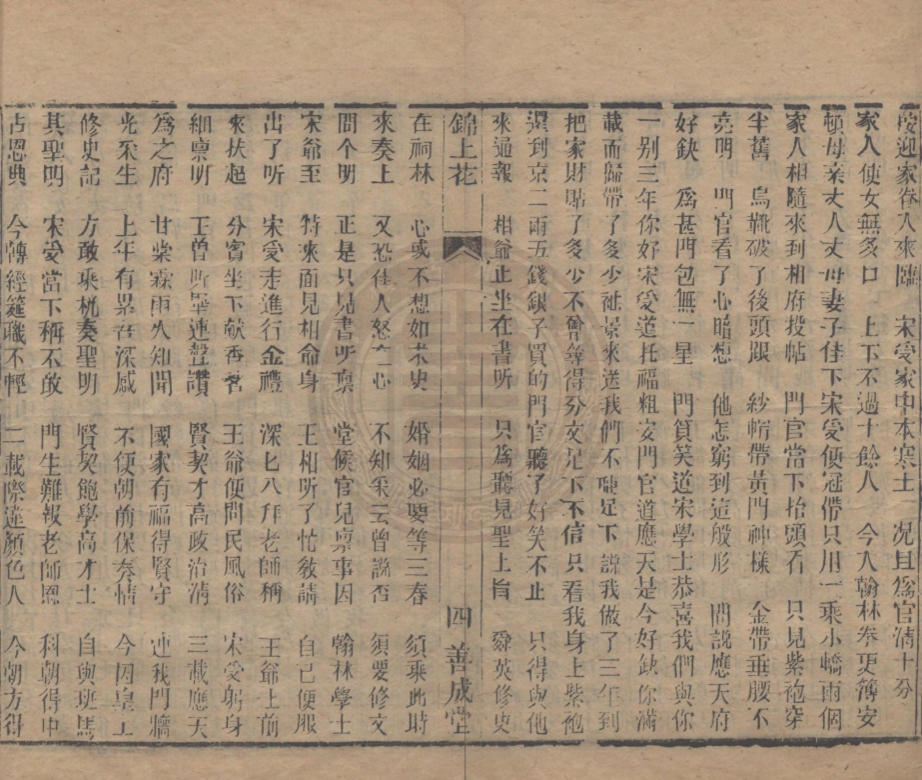 家眷人來臨 宋受家中本寒士 况且爲官清十分
家人使女無多口 上下不過十餘人 今入翰林奉更薄安
頓母亲丈人丈母妻子住下宋受便冠帶只用一乘小轎兩個
家人相隨來到相府投帖 門官當下抬頭看 只見紫袍穿
半舊 烏靴破了後頭跟 紗帽帶黃門神樣 金帶垂腰不
亮明 門官看了心暗想 他怎窮到這般形 問說應天府
好缺 爲甚門包無一星 門官笑道宋學士恭喜我們與你
一别三年你好宋受道托福粗安門官道應天是今好缺你滿
載而歸帶了多少景來送我們不 足下 說我做了三年到
把家財貼了多少不曾尋得分文足下不信只看我身上紫袍
還到京二兩五錢銀子買的門官聽了好笑不止 只得與他
來通報 相爺正坐在書听 只爲聽見聖上旨 舜英修史
錦上花 四 善成堂
在祠林 心或不想如求史 婚姻必要等三春 須乘此時
來奏上 又恐佳人怒在心 不知采云曾說否 須要修文
問个明 正是只見書听禀 堂候官兒禀事因 翰林學士
宋爺至 特來面見相爺身 王相听了忙敎請 自己便服
出了听 宋受走進行金禮 深匕八拜老師稱 王爺上前
來扶起 分賓坐下献香茗 王爺便問民風俗 宋受躬身
細禀明 王曾听畢連聲讚 賢契才高政治清 三載應天
爲之府 甘棠霖雨久知聞 國家有福得賢守 連我門牆
光采生 上年有累吾深感 不便朝前保奏情 今因皇上
修史記 方敢乘机奏聖明 賢契飽學高才士 自與班馬
其聖明 宋受當下稱不敢 門生難報老師恩 科朝得中
占恩典 今轉經筵職不輕 二載際違顏色人 今朝方得